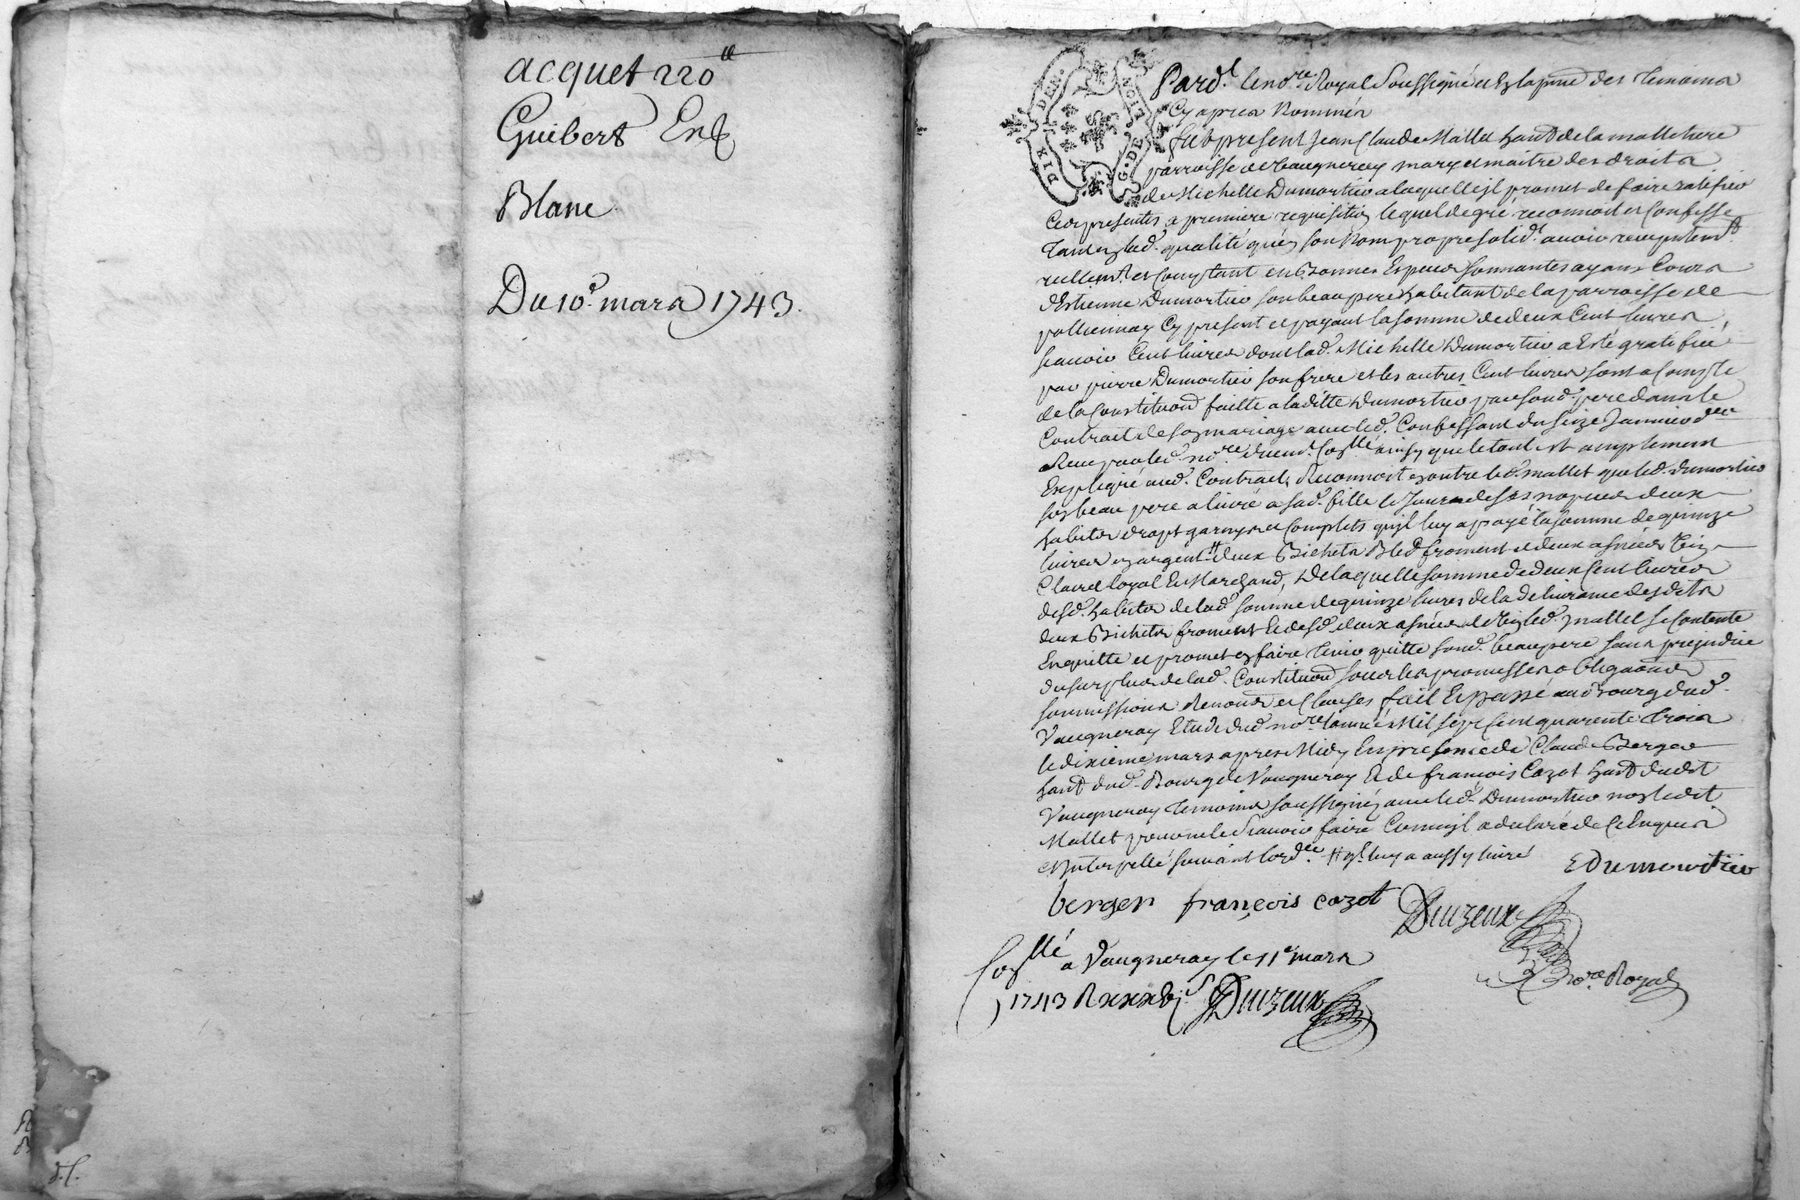 acquet 220ᵗᵗ
Guibert Enf
Blanc
Du 10ᵉ mars 1743.
DIX DEN.
G. DE LION
Pardᵗ le noʳᵉ Royal soussigné et en la pnce des temoins
cy apres nommés
fut present Jean Claude Mallet habt de la malletiere
parroisse de Vaugneray mary et maitre des droits
de Michelle Dumortier a laquelle il promet de faire ratifier
ces presentes a premiere requisition lequel de gré reconnoit et confesse
tant en lad. qualité qu'en son nom propre solidᵗ avoir receu presentemᵗ
reellemᵗ et comptant en bonnes especes sonnantes ayans cours
d'Estienne Dumortier son beau pere habitant de la parroisse de
pollionnay cy present et payant la somme de deux cent livres
scavoir cent livres dont lad. Michelle Dumortier a esté gratifiée
par pierre Dumortier son frere et les autres cent livres sont a compte
de la constitution faitte a laditte Dumortier par sond. pere dans le
contract de son mariage avec led. confessant du seize janvier dᵉʳ
receu par led. noʳᵉ controllé ainsy que le tout est amplement
expliqué aud. contract, reconnoit en outre led. mallet que led. dumortier
son beau pere a livré a sad. fille le jour de ses nopces deux
habits draps garnys et complets qu'il luy a payé la somme de quinze
livres en argent # deux bichets bled froment et deux asnées vin
claire loyal et marchand, de laquelle somme de deux cent livres
desd. habits de lad. somme de quinze livres de la delivrance desdits
deux bichets froment et desd. deux asnées de vin led. mallet se contente
en quitte et promet en faire tenir quitte sond. beau pere sans prejudice
du surplus de lad. constitution sous les promesses obligaons
soumissions renonons et clauses fait et passé au bourg dud.
Vaugneray etude dud. noʳᵉ l'année mil sept cent quarente trois
le dixieme mars apres midy en presence de Claude Berger
habt dud. Bourg de Vaugneray et de françois Cozot habt dudit
Vaugneray temoins soussignés avec led. Dumortier non ledit
Mallet pour ne le scavoir faire comm'il a declaré de ce enquis
et interpellé suivant l'ordᶜᵉ # yl luy a aussy livré
E dumourtier
berger françois cozot Duizeux
noʳᵉ Royal
Conᵗˡˡé a Vaugneray le 11ᵉ mars
1743 R xxxbjˢ Duizeux